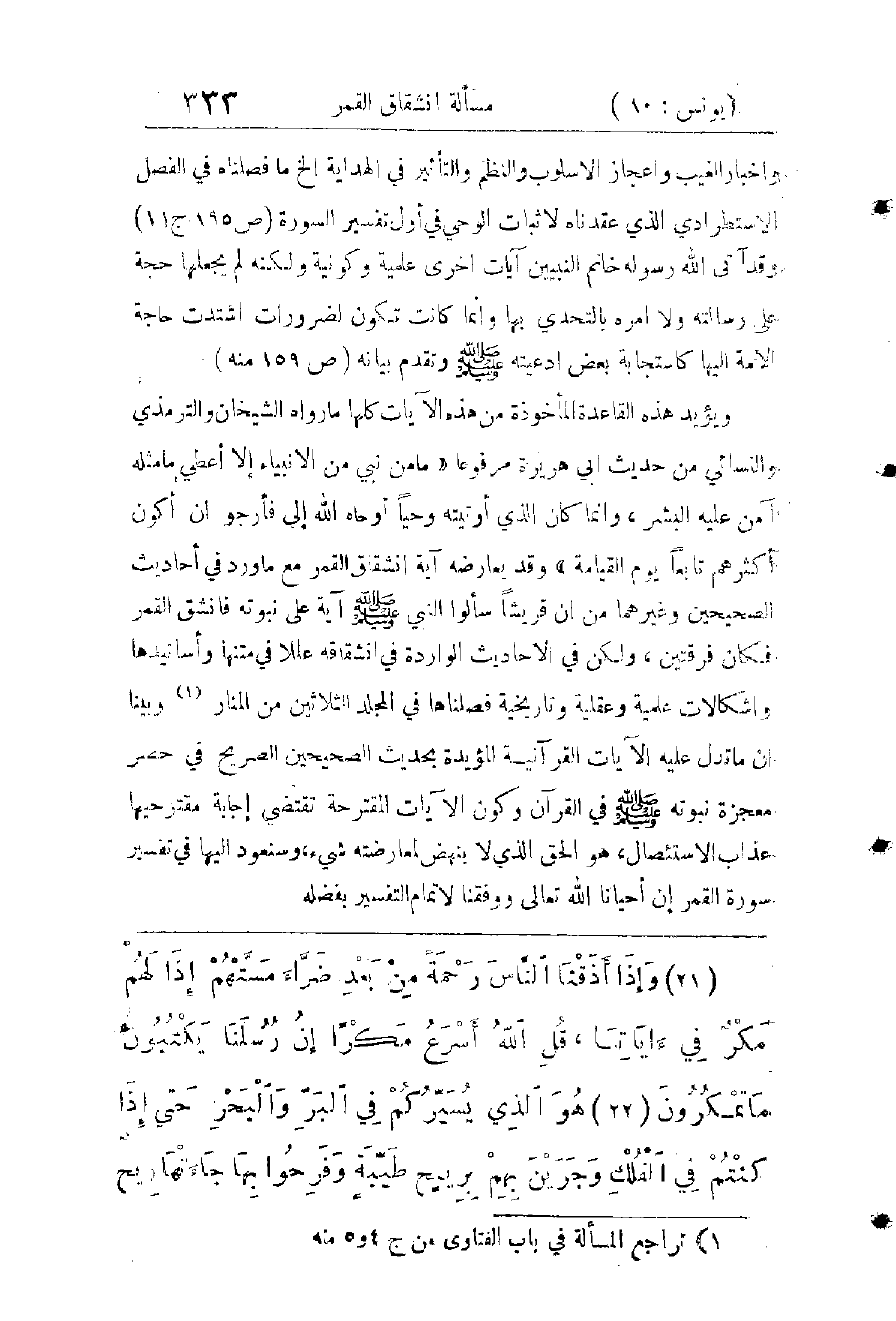 (يونس : ١٠) مسألة انشقاق القمر ٣٣٣
واخبار الغيب واعجاز الاسلوب والنظم والتأثير في الهداية الخ ما فصلناه في الفصل
الاستطرادي الذي عقدناه لاثبات الوحي في أول تفسير السورة (ص ١٩٥ ج ١١)
وقد آتى الله رسوله خاتم النبيين آيات اخرى علمية وكونية ولكنه لم يجعلها حجة
على رسالته ولا امره بالتحدي بها وانما كانت تكون لضرورات اشتدت حاجة
الامة اليها كاستجابة بعض ادعيته ﷺ وتقدم بيانه (ص ١٥٩ منه)
ويؤيد هذه القاعدة المأخوذة من هذه الآيات كلها مارواه الشيخان والترمذي
والنسائي من حديث ابي هريرة مرفوعا « مامن نبي من الانبياء إلا أعطي مامثله
آمن عليه البشر ، وانما كان الذي أوتيته وحياً أوحاه الله إلي فأرجو ان أكون
أكثرهم تابعاً يوم القيامة » وقد يعارضه آية انشقاق القمر مع ماورد في أحاديث
الصحيحين وغيرهما من ان قريشاً سألوا النبي ﷺ آية على نبوته فانشق القمر
فكان فرقتين ، ولكن في الاحاديث الواردة في انشقاقه عللا في متنها وأسانيدها
واشكالات علمية وعقلية وتاريخية فصلناها في المجلد الثلاثين من المنار (١) وبينا
ان ماتدل عليه الآيات القرآنية المؤيدة بحديث الصحيحين الصريح في حصر
معجزة نبوته ﷺ في القرآن وكون الآيات المقترحة تقتضي إجابة مقترحيها
عذاب الاستئصال، هو الحق الذي لا ينهض لمعارضته شيء، وسنعود اليها في تفسير
سورة القمر إن أحيانا الله تعالى ووفقنا لاتمام التفسير بفضله
(٢١) وَإِذَا أَذَقْنَا ٱلنَّاسَ رَحْمَةً مِنْ بَعْدِ ضَرَّاءَ مَسَّتْهُمْ إِذَا لَهُمْ
مَكْرٌ فِي ءَايَاتِنَـا ، قُلِ ٱللهُ أَسْرَعُ مَكْرًا إِنَّ رُسُلَنَا يَكْتُبُونَ
مَاتَمْكُرُونَ (٢٢) هُوَ ٱلَّذِي يُسَيِّرُكُمْ فِي ٱلبَرِّ وَٱلْبَحْرِ حَتَّى إِذَا
كُنْتُمْ فِي ٱلْفُلْكِ وَجَرَيْنَ بِهِمْ بِرِيحٍ طَيِّبَةٍ وَفَرِحُوا بِهَا جَاءَتْهَا رِيحٌ
١) تراجع المسألة في باب الفتاوى من ج ٤ و ٥ منه